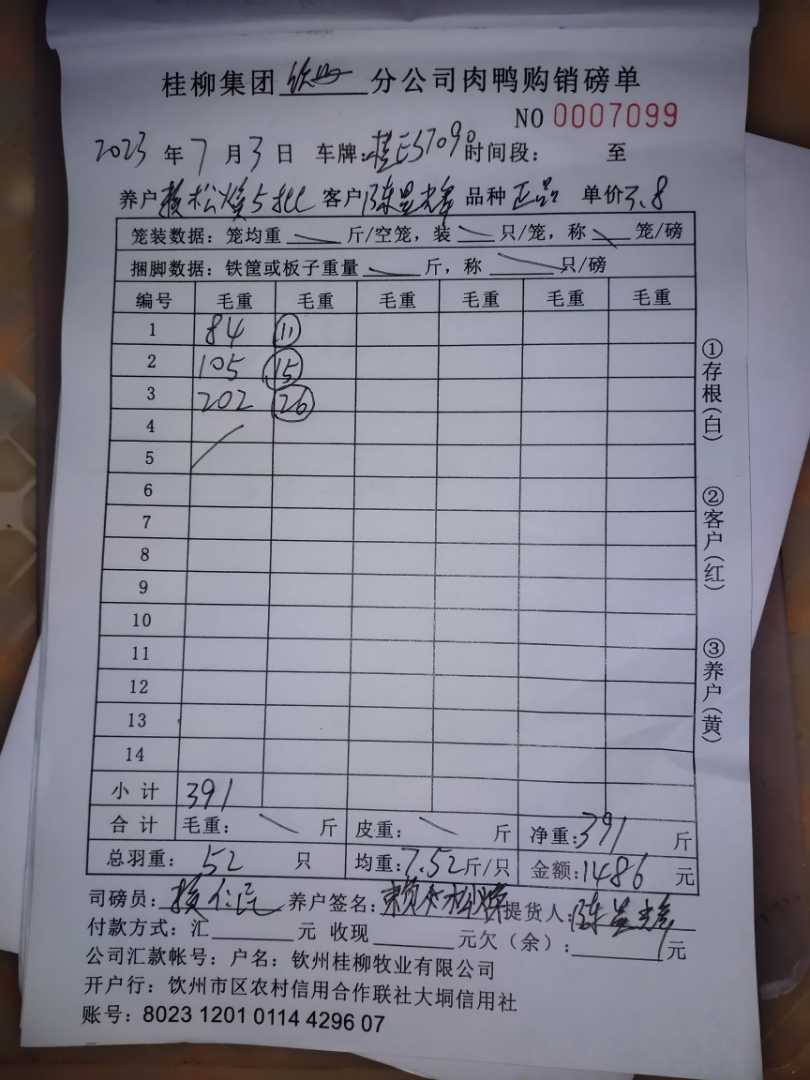 桂柳集团 钦州 分公司肉鸭购销磅单
NO 0007099
2023 年 7 月 3 日 车牌: 时间段: 至
养户 赖松焕5批 客户 陈星辉 品种 正品 单价 3.8
笼装数据: 笼均重 斤/空笼, 装 只/笼, 称 笼/磅
捆脚数据: 铁筐或板子重量 斤, 称 只/磅
编号 毛重 毛重 毛重 毛重 毛重 毛重
1 84 11
2 105 15
3 202 26
4
5
6
7
8
9
10
11
12
13
14
小计 391
合计 毛重: 斤 皮重: 斤 净重: 391 斤
总羽重: 52 只 均重: 7.52 斤/只 金额: 1486 元
司磅员: 养户签名: 提货人: 陈星辉
付款方式: 汇 元 收现 元欠(余): 元
公司汇款帐号: 户名: 钦州桂柳牧业有限公司
开户行: 饮州市区农村信用合作联社大垌信用社
账号: 8023 1201 0114 4296 07
①存根(白)
②客户(红)
③养户(黄)